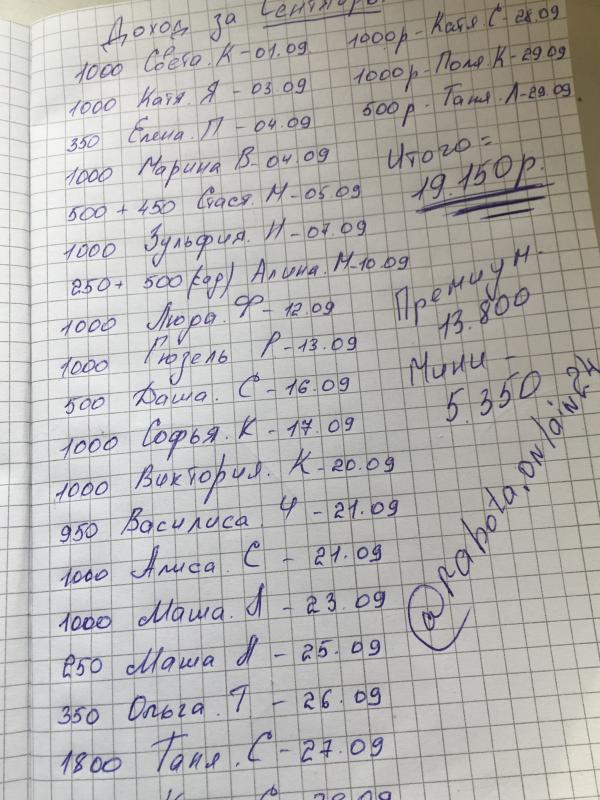 Доход за Сентябрь.
1000 Света. К - 01.09.
1000 Катя. Я - 03.09
350 Елена. П - 04.09
1000 Марина В - 04.09
500 + 450 Стася. М - 05.09
1000 Зульфия. Н - 07.09
250 + 500 Алина. М - 10.09
1000 Люра. Ф - 12.09
1000 Гюзель Р - 13.09
500 Даша. С - 16.09
1000 Софья. К - 17.09
1000 Виктория. К - 20.09
950 Василиса. Ч - 21.09
1000 Алиса. С - 21.09
1000 Маша. Л - 23.09
250 Маша Л - 25.09
350 Ольга. Т - 26.09
1800 Таня. С - 27.09
1000р - Катя. С - 28.09
1000р - Поля. К - 29.09
500р - Таня. Л - 29.09
Итого =
19.150р.
Премиум.
13.800
Мини -
5.350
@rabota.onlain24